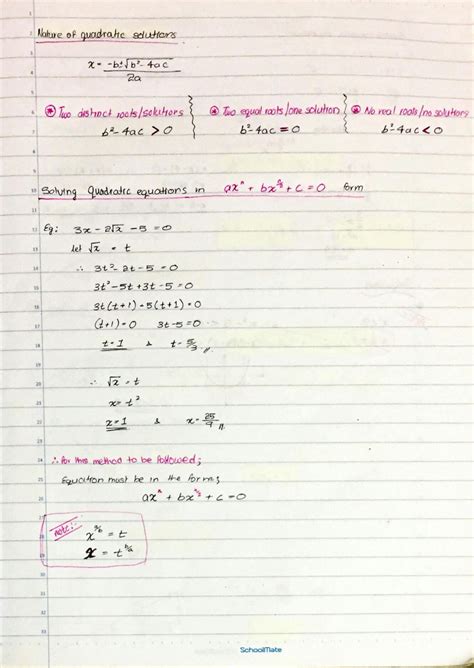 Nature of quadratic solutions
x = -b±√b²-4ac
2a
Two distinct roots/solutions
b²-4ac > 0
Two equal roots/one solution
b²-4ac = 0
No real roots/no solutions
b²-4ac < 0
Solving Quadratic equations in axⁿ + bx^n/2 + c = 0 form
Eg: 3x - 2√x - 5 = 0
let √x = t
∴ 3t² - 2t - 5 = 0
3t² - 5t + 3t - 5 = 0
3t(t+1) - 5(t+1) = 0
(t+1) = 0 3t - 5 = 0
t = 1 & t = 5/3 //
∴ √x = t
x = t²
x = 1 & x = 25/9 //
∴ for this method to be followed;
Equation must be in the form;
axⁿ + bx^n/2 + c = 0
note:-
= t
x = t
SchoolMate